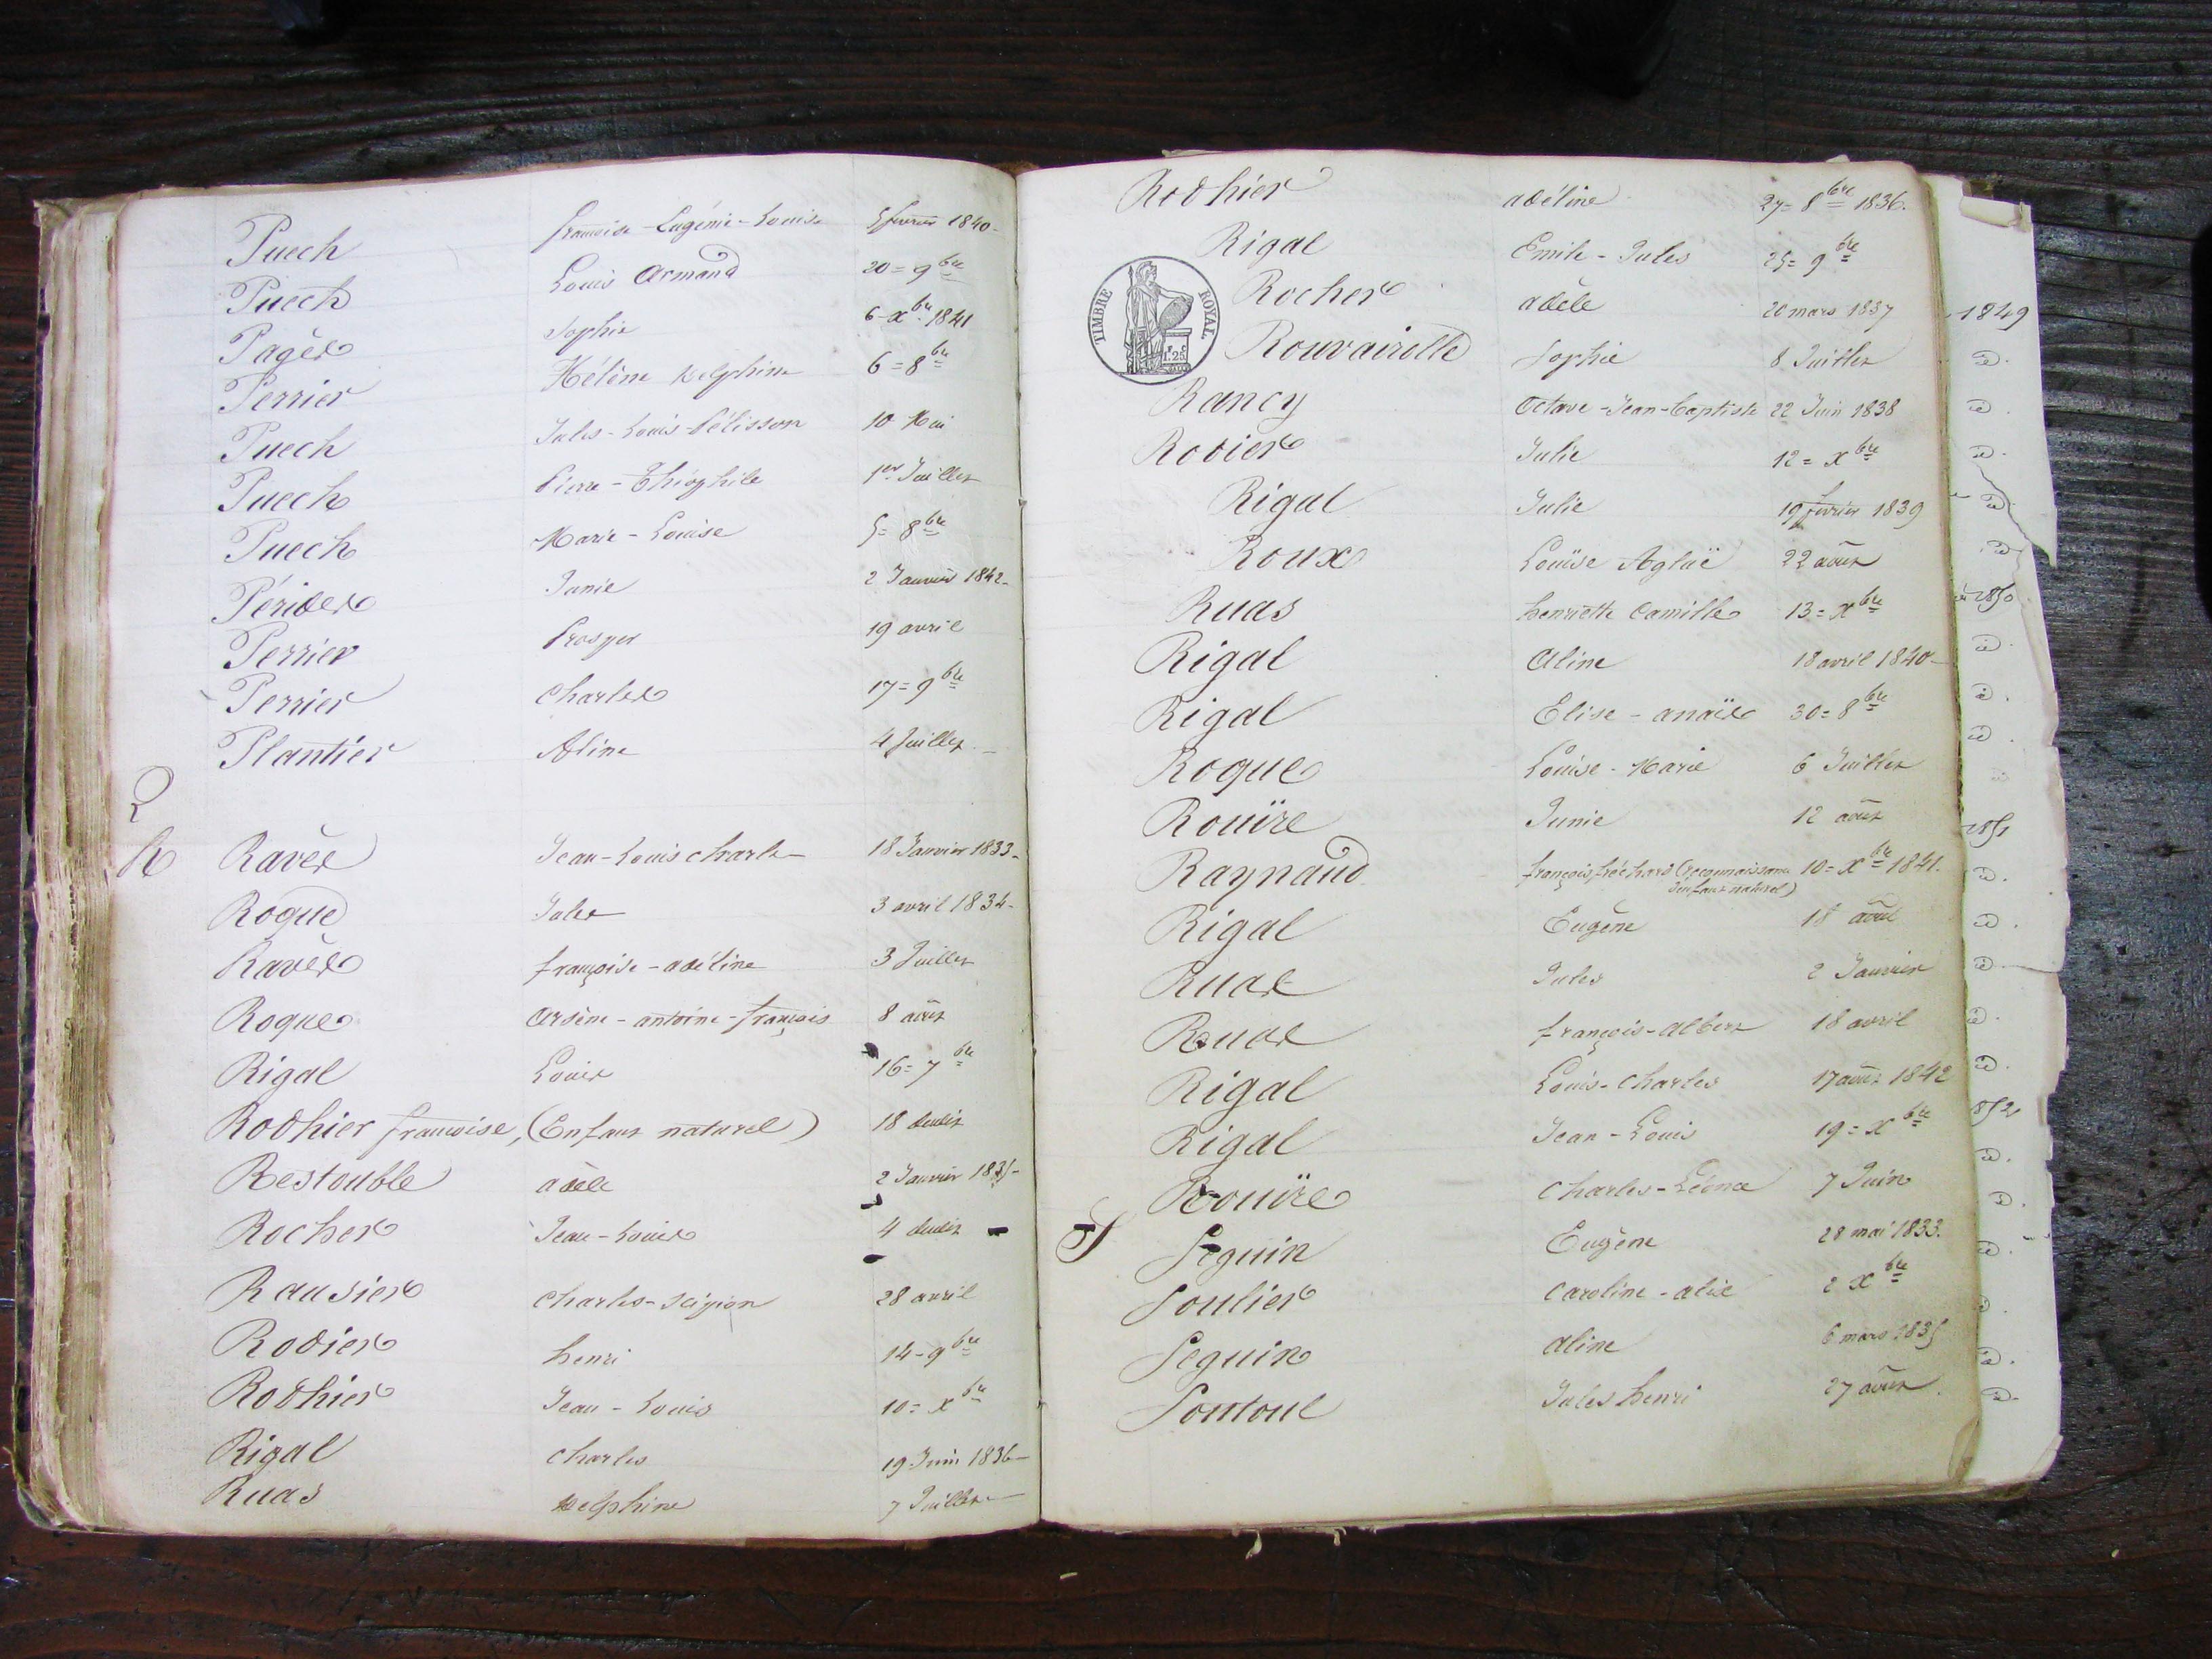 Puech françoise-Eugénie-Louise 5 février 1840-
Puech Louis Armand 20=9bre
Pagès Sophie 6-xbre 1841
Perrier Hélène Delphine 6=8bre
Puech Jules-Louis-Pélisson 10 Mai
Puech Pierre-Théophile 1er Juillet
Puech Marie-Louise 5=8bre
Péridès Junie 2 Janvier 1842-
Perrier Prosper 19 avril
Perrier Charles 17=9bre
Plantier Aline 4 Juillet
Q
R Ravès Jean-Louis charles 18 Janvier 1833-
Roque Jules 3 avril 1834-
Ravès françoise-adéline 3 Juillet
Roque Arsène-antoine-françois 8 août
Rigal Louis 16=7bre
Rodhier françoise, (Enfant naturel) 18 dudit
Restouble adèle 2 Janvier 1835-
Rocher Jean-Louis 4 dudit
Rausier Charles-Scipion 28 avril
Rodier henri 14-9bre
Rodhier Jean-Louis 10=xbre
Rigal Charles 19 Juin 1836-
Ruas Delphine 7 Juillet-
Rodhier adéline 27=8bre 1836.
Rigal Emile-Jules 25=9bre
Rocher adèle 20 mars 1837
Rouvairolle Sophie 8 Juillet
TIMBRE ROYAL
F. C.
1.25
Rancy Octave-Jean-Baptiste 22 Juin 1838
Rodier Julie 12=xbre
Rigal Julie 19 février 1839
Roux Louïse Aglaé 22 août
Ruas henriette Camille 13=xbre
Rigal Aline 18 avril 1840-
Rigal Elise-anaïs 30=8bre
Roque Louise-Marie 6 Juillet
Rouïre Junie 12 août
Raynaud françois fréchard (reconnaissance 10=xbre 1841.
d'enfant naturel)
Rigal Eugène 18 août
Ruas Jules 2 Janvier
Ruas françois-albert 18 avril
Rigal Louis-Charles 17 août 1842
Rigal Jean-Louis 19=xbre
Rouïre Charles-Léonce 7 Juin
S Seguin Eugène 28 mai 1833.
Soulier Caroline-alix 2 xbre
Seguin aline 6 mars 1835
Soutoul Jules henri 27 août
1849
1850
1851
852